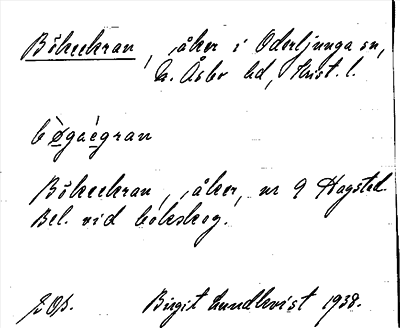 Bökekran, åker i Oderljunga sn,
N. Åsbo hd, Krist. l.
bø̀gaégran
Bökekran, åker, nr 9 Hagstad.
Bel. vid bokskog.
Birgit Lundkvist 1938.